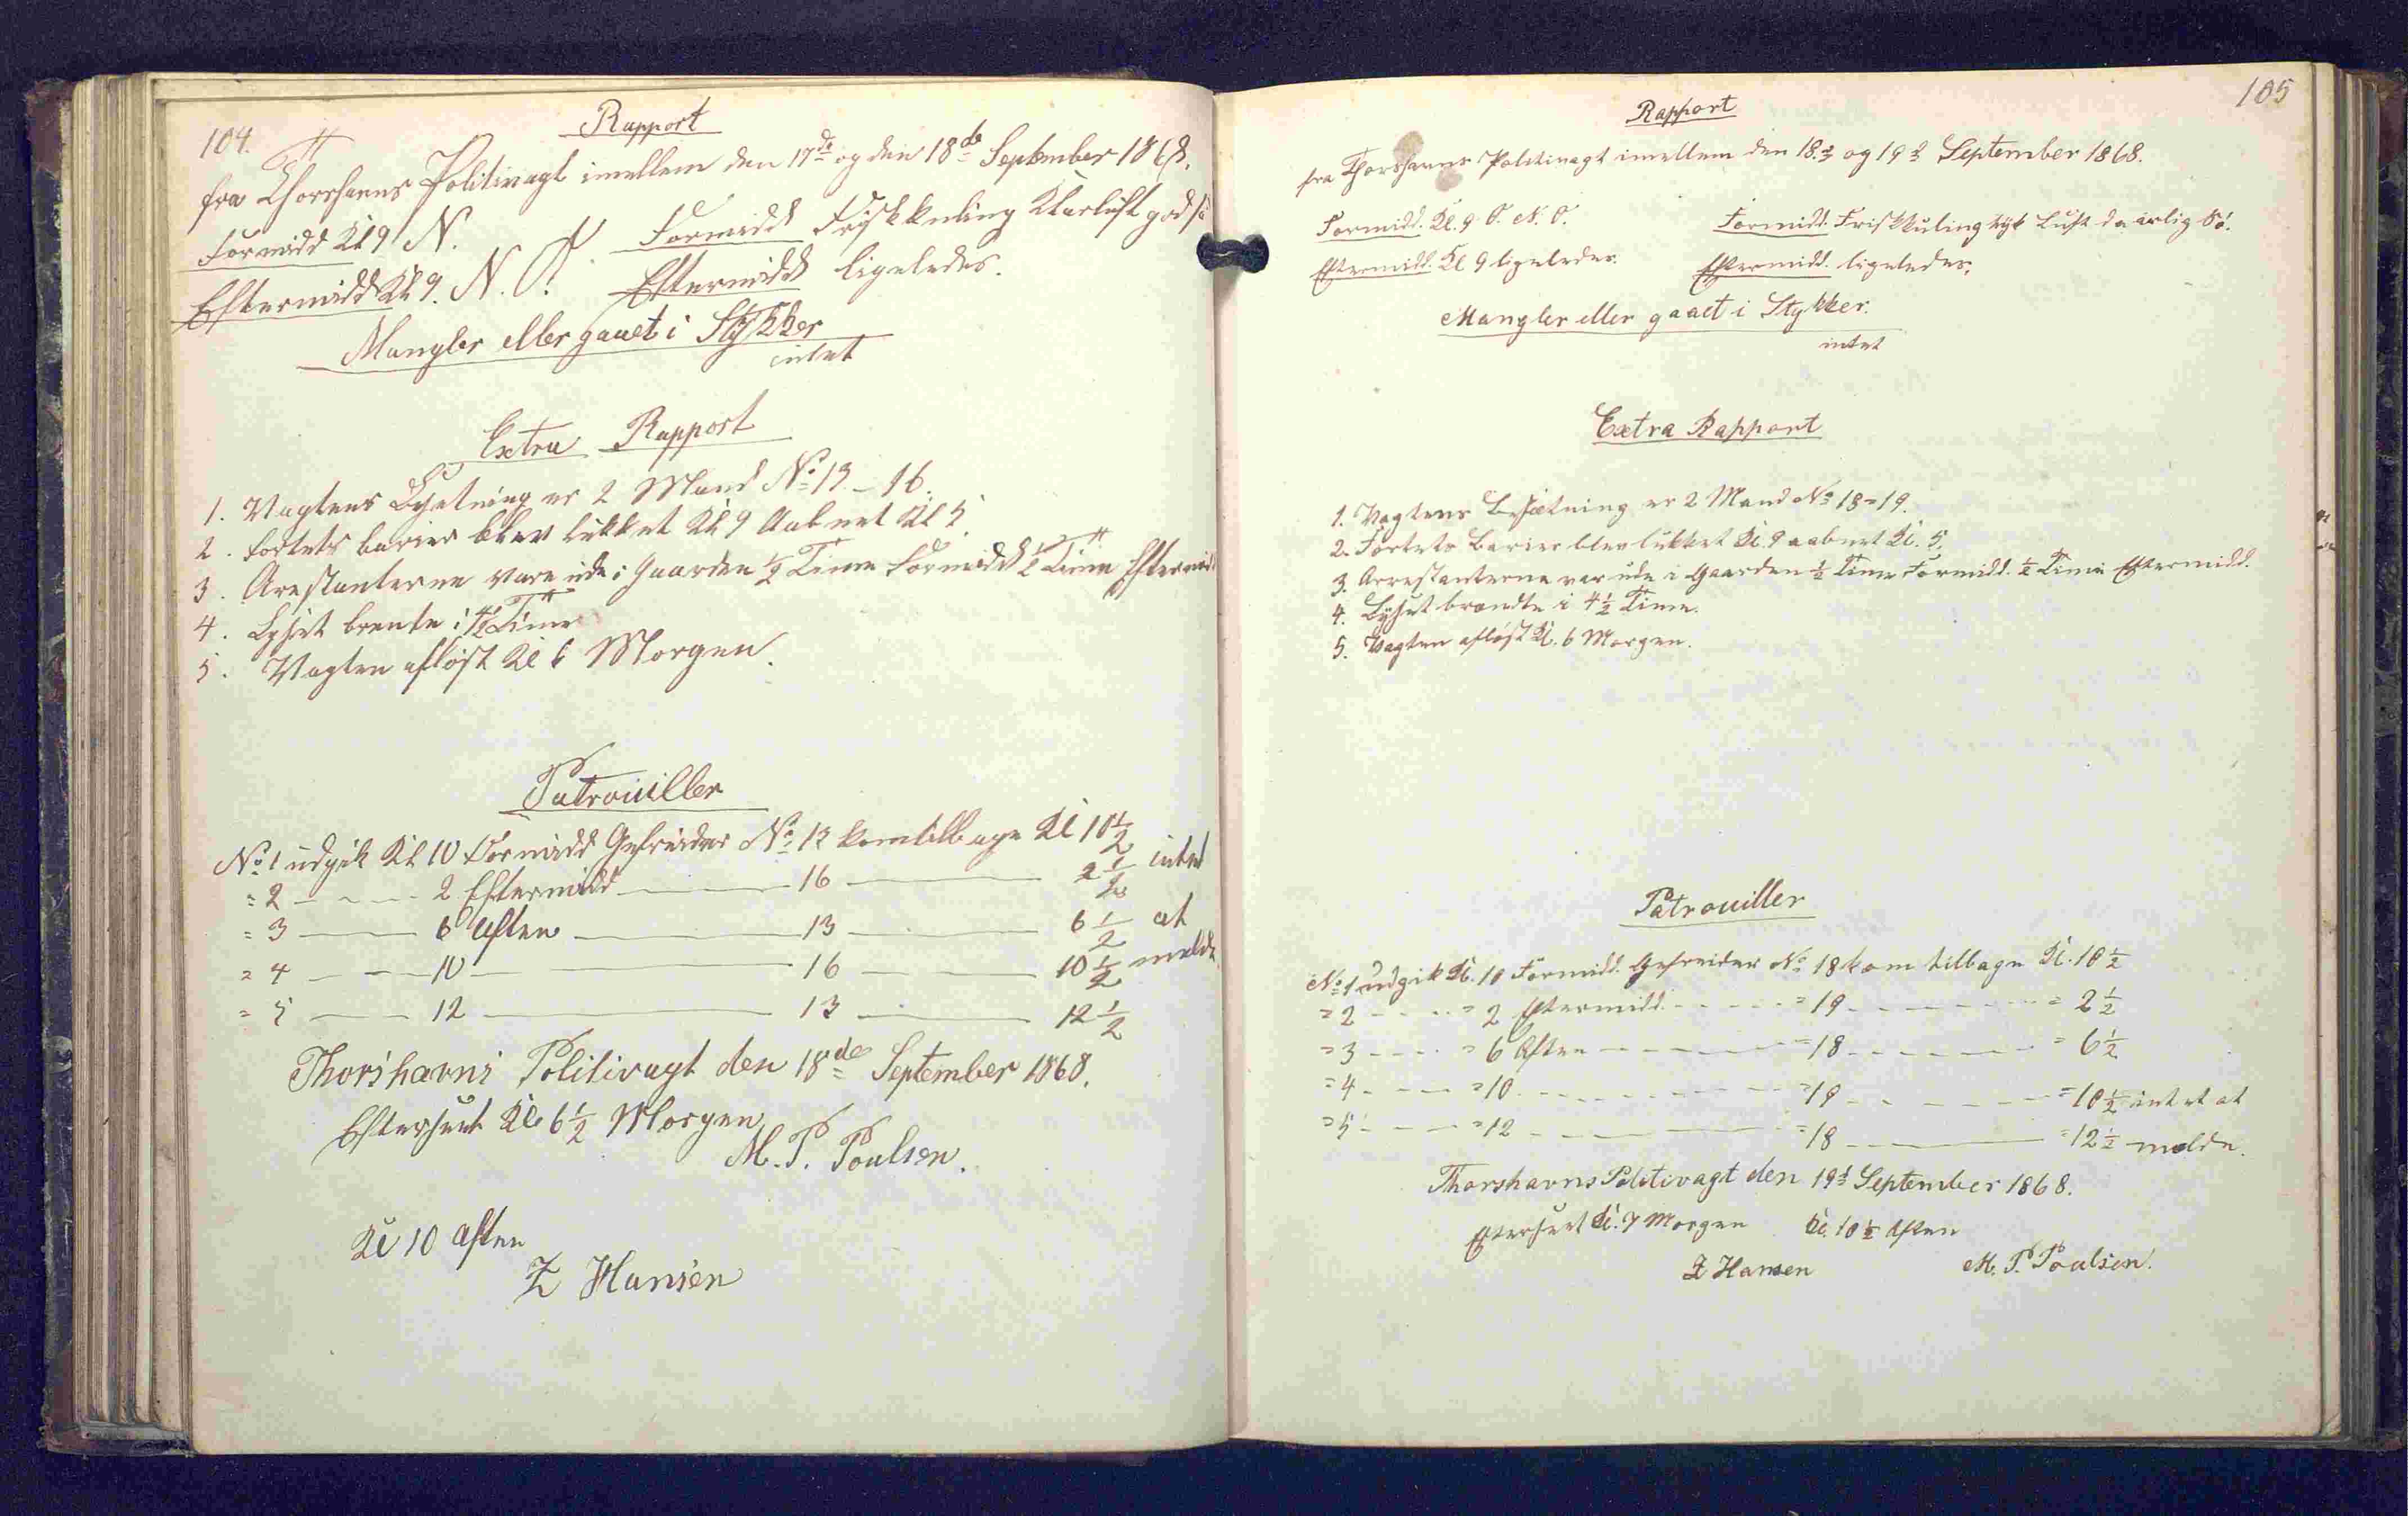 104.
Rapport
fra Thorshavns Politivagt imellem den 17de og den 18de September 1868.
Formidd Kl 9 N.
Formidd Friskkuling Klarluft god Sö
Eftermidd Kl 9. N. O.
Eftermidd ligeledes.
Mangler eller gaaet i Stykker
intet
Extra Rapport
1. Vagtens Besetning er 2 Mand No 13 - 16.
2. Fortets barier blev lukket Kl 9 Aabnet Kl 5.
3. Arestanterne vare ude i Gaarden 1/2 Time Formidd 1/2 Time Eftermidd
4. Lyset brente i 4 1/2 Time
5. Vagten aflöst Kl 6 Morgen.
Patrouiller
No 1 udgik Kl 10 Formidd Gefreider No 13 kom tilbage Kl 10 1/2
= 2 - - - - 2 Eftermidd - 16 - 2 1/2 intet
= 3 - 6 Aften - 13 - 6 1/2 at
= 4 - - 10 - 16 - 10 1/2 melde
= 5 - 12 - 13 - 12 1/2
Thorshavns Politivagt den 18de September 1868.
Efterseet Kl 6 1/2 Morgen
M. P. Poulsen.
Kl 10 Aften
Z Hansen
105
Rapport
fra Thorshavns Politivagt imellem den 18.d og 19d September 1868.
Formidd. Kl. 9 O. N. O.
Formidd. Friskkuling tyk Luft daarlig Sö.
Eftermidd. Kl 9 ligeledes.
Eftermidd. ligeledes.
Mangler eller gaaet i Stykker.
intet
Extra Rapport
1. Vagtens Besætning er 2 Mand No 18 = 19.
2. Fortets Barier blev lukket Kl. 9 aabnet Kl. 5.
3. Arrestanterne var ude i Gaarden 1/2 Time Formidd. 1/2 Time Eftermidd.
4. Lyset brændte i 4 1/2 Time.
5. Vagten aflöst Kl. 6 Morgen.
Patrouiller
No 1 udgik Kl. 10 Formidd. Gefreider No 18 kom tilbage Kl. 10 1/2
= 2 - - - - = 2 Eftermidd. - - - - = 19 - - - - = 2 1/2
= 3 - - - - = 6 Aften - - - - = 18 - - - - = 6 1/2
= 4 - - - - = 10 - - - - = 19 - - - - = 10 1/2 intet at
= 5 - - - - = 12 - - - - = 18 - - - - = 12 1/2 melde.
Thorshavns Politivagt den 19d September 1868.
Efterseet Kl. 7 Morgen Kl. 10 1/2 Aften
Z Hansen
M. P. Poulsen.